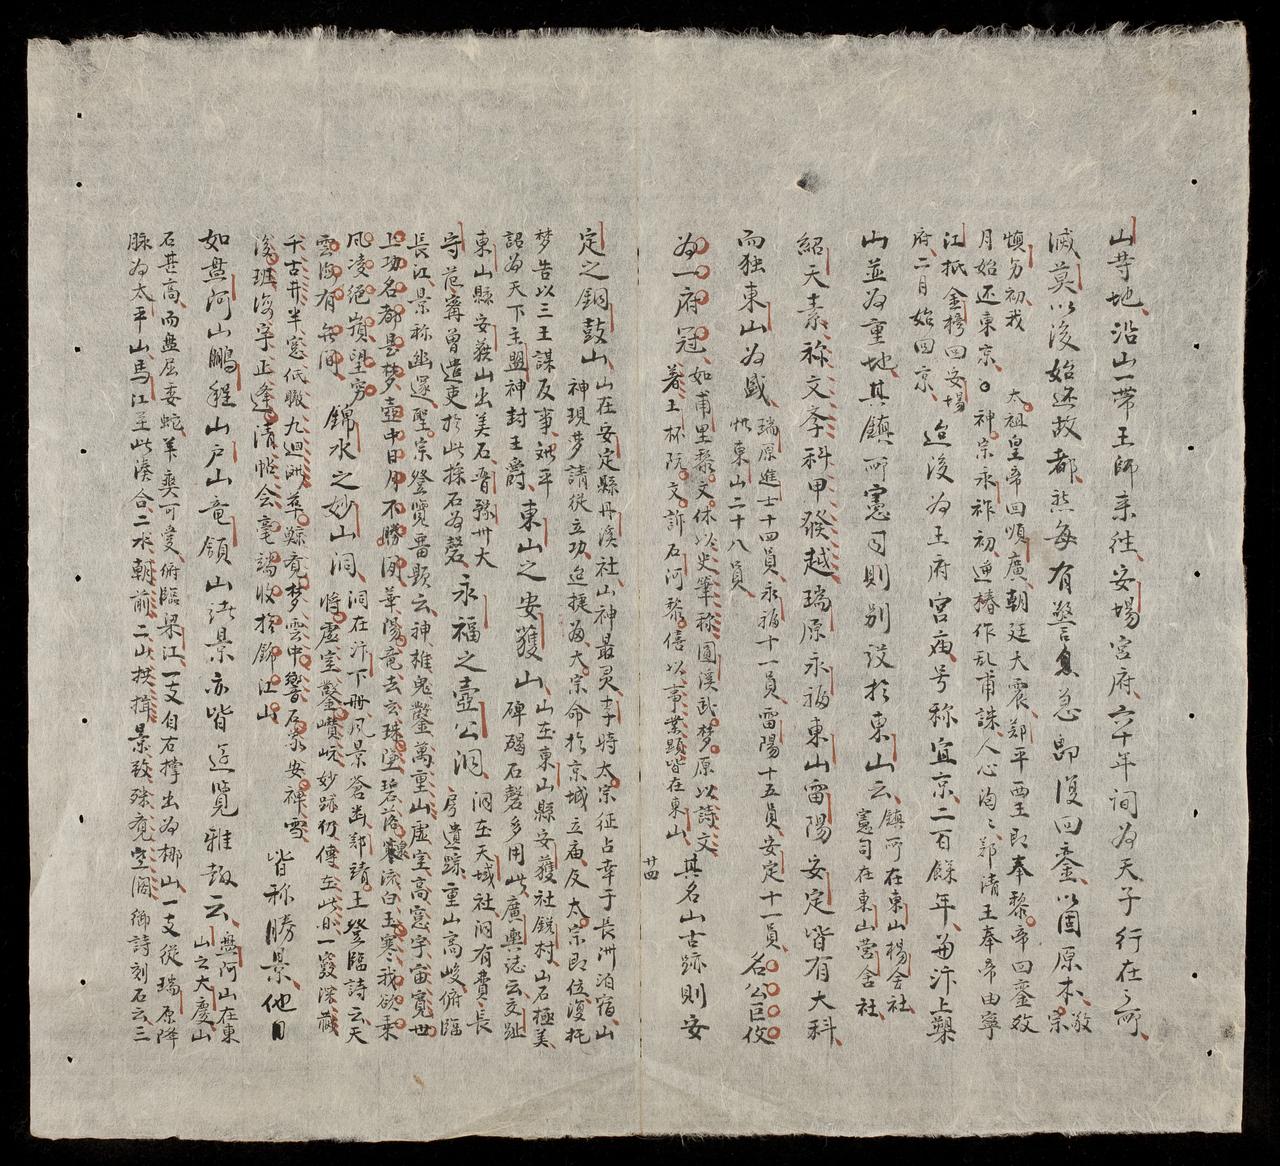 山苛地沿山一帶王師来往安場宮府六十年间為天子行在之所
滅莫以後始还故都然每有警急即復回銮以固原本敬宗
慎另初我太祖皇帝回順廣朝廷大震鄭平西王即奉黎帝回銮效
月始还東京神宗永祚初逆椿作乱甫誅人心洶々鄭清王奉帝由寧
江抵金榜回安場
府二月始回京迨後為王府宮庙号称宜京二百餘年並汴上塑
山並為重地其鎮所憲司則别设於東山云鎮所在東山楊舍社
憲司在東山营舍社
紹天素称文李科甲發越瑞原永福東山雷陽安定皆有大科
而独東山为盛瑞原進士十四員永福十一員雷陽十五員安定十一員
惟東山二十八員名公巨伩
为一府冠如甫里黎文休以史筆称圓溪武梦原以詩文
着土杯阮文訢石河黎僖以事業顕皆在東山其名山古跡則安
廿四
定之銅鼓山山在安定縣丹溪社山神最灵李時太宗征占幸于長洲泊宿山
神現梦請從立功迨捷为大宗命於京城立庙及太宗即位復托
梦告以三王謀反事班平
詔为天下主盟神封王爵東山之安獲山山在東山縣安獲社鋭村山石極美
碑碣石磬多用此廣輿誌云交趾
東山縣安獲山出美石晋豫州大
守范甯曾遣吏於此採石为磬永福之壺公洞洞在天域社洞有費長
房遺踪重山高峻俯臨
長江景称幽邃聖宗登覽畨題云神椎鬼鑿萬重山虚室高窓宇宙寬世
上功名都是梦壺中日月不勝闲華陽竜去玄珠墜碧落流白玉寒我欲乘
風凌絶巔望穷
雲海有無间錦水之妙山洞洞在汴下冊風景奇幽鄭靖王登臨詩云天
将虚室鑿巑岏妙跡仍傳在此间一竅深藏
千古井半窓低瞰九迴灘萃鯨竟梦雲中響石家安禅雪
後班
海宇正逢清帖会毫端收拾錦江山皆称勝景他日
如盘阿山鵬程山户山竜領山诸景亦皆遊覽雅趣云盤阿山在東
山之大慶山
石甚高而盘屈委蛇羊奭可愛俯臨梁江一支自右撑出为梛山一支従瑞原降
脉为太平山馬江至此湊合二水朝前二山拱揖景致殊竟空阔御詩刻石云三